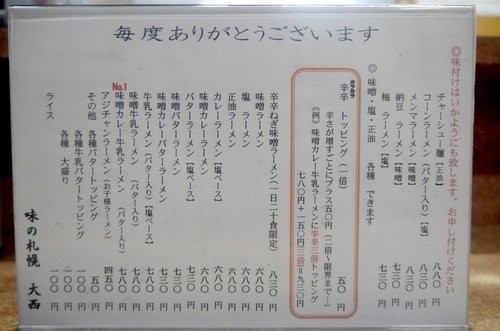 毎度ありがとうございます
◎味付けはいかようにも致します。お申し付けください
チャーシュー麺【正油】 八八〇円
コーンラーメン（バター入り）【塩】 七八〇円
メンマラーメン【味噌】 七三〇円
納豆 ラーメン【味噌】 七八〇円
梅 ラーメン【塩】 七三〇円
◎味噌・塩・正油 各種 できます
カラカラ
辛辛 トッピング（一倍） 五〇円
辛さが増すごとにプラス五〇円（二倍～限界まで…）
《例》味噌カレー牛乳ラーメンに辛辛三倍トッピング
七八〇円＋一五〇円（三倍）＝九三〇円
辛辛ねぎ味噌ラーメン（一日二十食限定） 八三〇円
味噌ラーメン 六八〇円
塩 ラーメン 六八〇円
正油ラーメン 六八〇円
カレーラーメン【塩ベース】 六八〇円
味噌カレーラーメン 七三〇円
バターラーメン【塩ベース】
味噌バターラーメン
味噌カレーバターラーメン 七八〇円
牛乳ラーメン（バター入り）【塩ベース】
味噌牛乳ラーメン（バター入り）
No.1
味噌カレー牛乳ラーメン（バター入り） 七八〇円
アジチャンラーメン（お子様ラーメン） 四五〇円
その他 各種バタートッピング 五〇円
各種牛乳バタートッピング 一〇〇円
各種 大盛り 一〇〇円
ライス 一〇〇円
味の札幌 大西